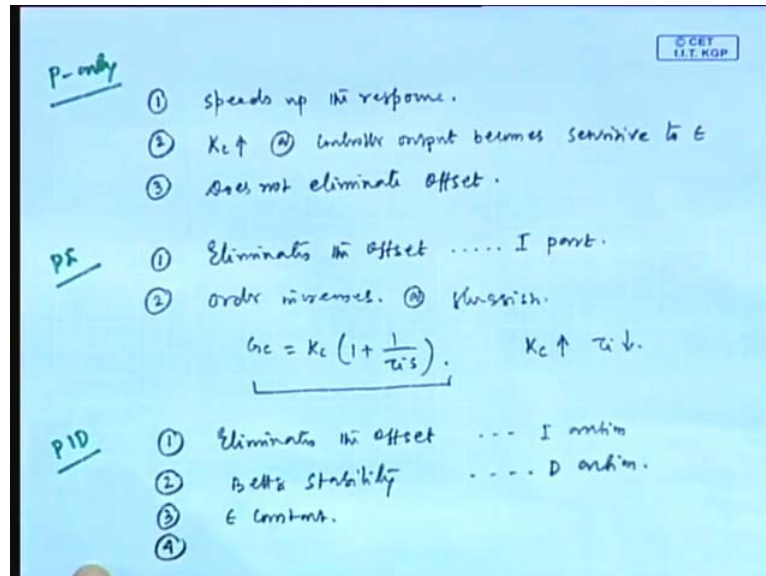 © CET
I.I.T. KGP
P-only
① speeds up the response.
② Kc ↑ @ controller output becomes sensitive to ε
③ Does not eliminate offset.
PI
① Eliminates the offset ..... I part.
② order increases. @ sluggish.
Gc = Kc (1 + 1/τi s). Kc ↑ τi ↓.
PID
① Eliminates the offset --- I action
② Better stability .... D action.
③ ε constant.
④